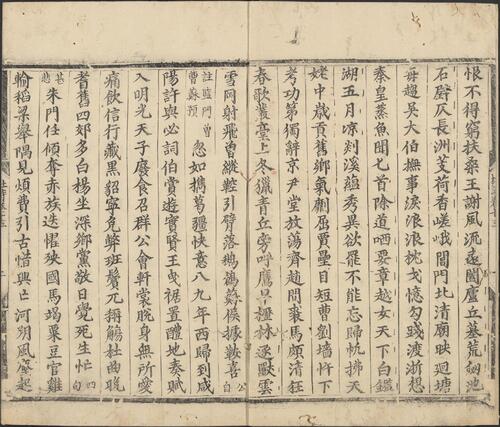 恨不得窮扶桑王謝風流遠闔廬丘墓荒劒池
石壁仄長洲芰荷香嵯峨閶門北清廟映廻塘
每趨吳大伯撫事淚浪浪枕戈憶勾踐渡浙想
秦皇蒸魚聞匕首除道哂要章越女天下白鑑
湖五月凉剡溪蘊秀異欲罷不能忘歸帆拂天
姥中歲貢舊鄉氣劘屈賈壘目短曹劉墻忤下
考功第獨辭京尹堂放蕩齊趙間裘馬頗清狂
春歌叢臺上冬獵青丘旁呼鷹皁櫪林逐獸雲
雪岡射飛曾縱鞚引臂落鶖鶬蘇侯據鞍喜公自
註監門冑曹蘇預忽如攜葛彊快意八九年西歸到咸
陽許與必詞伯賞遊實賢王曳裾置醴地奏賦
入明光天子廢食召群公會軒裳脫身無所愛
痛飲信行藏黑貂寧免弊班鬢兀稱觴杜曲晚
耆舊四郊多白楊坐深鄉黨敬日覺死生忙四句
甚悲朱門任傾奪赤族迭罹殃國馬竭粟豆官雞
輸稻梁舉隅見煩費引古惜興亡河朔風塵起